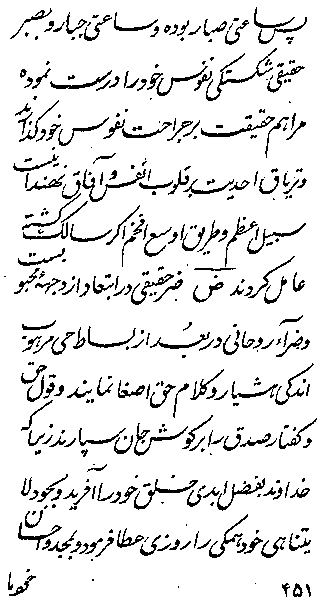 پس ساعتی صبار بوده و ساعتی جبار و بصبر
حقیقی شکستگی نفوس خود را درست نموده
مراهم حقیقت بر جراحت نفوس خود گذارید
و تریاق احدیت بر قلوب انفس و آفاق نهند اینست
سبیل اعظم و طریق اوسع افخم اگر سالک گشته
عامل گردند ض ضر حقیقی در ابتعاد از وجهۀ محبوبست
و ضرآء روحانی در بعد از بساط حی مرهوب
اندکی هشیار و کلام حق اصغا نمایند و قول حق
و گفتار صدق را بر گوش جان سپارند زیرا که
خداوند بفضل ابدی خلق خود را آفرید و بجود لا
یتناهی خود همگی را روزی عطا فرمود و بمجد و احسان
۴۵۱